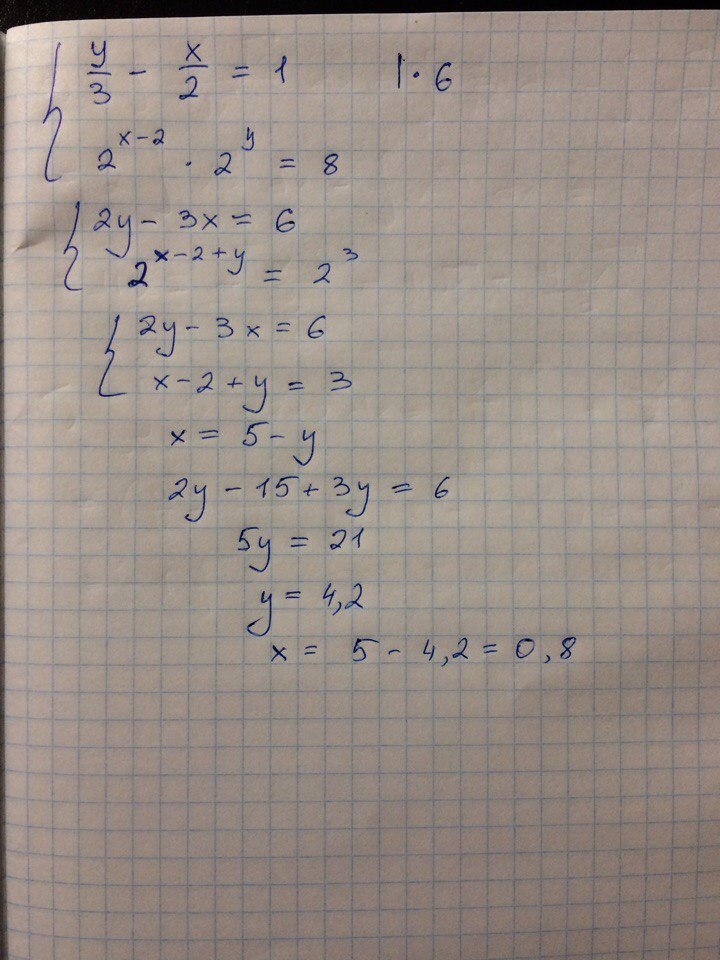 y/3 - x/2 = 1 | · 6
2^(x-2) · 2^y = 8
2y - 3x = 6
2^(x-2+y) = 2^3
2y - 3x = 6
x - 2 + y = 3
x = 5 - y
2y - 15 + 3y = 6
5y = 21
y = 4,2
x = 5 - 4,2 = 0,8